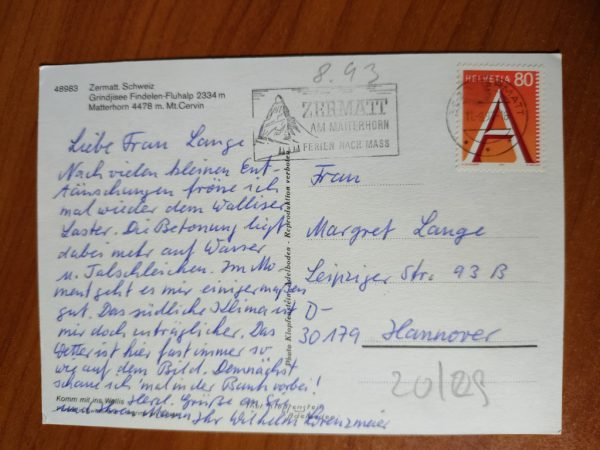 8.93
48983 Zermatt. Schweiz
Grindjisee Findelen-Fluhalp 2334 m
Matterhorn 4478 m. Mt. Cervin
ZERMATT
AM MATTERHORN
FERIEN NACH MASS
HELVETIA 80
A
Liebe Frau Lange
Nach vielen kleinen Ent-
täuschungen fröne ich
mal wieder dem Walliser
Laster. Die Betonung liegt
dabei mehr auf Wasser
u. Talschleichen. Im Mo-
ment geht es mir einigermaßen
gut. Das südliche Klima ist
mir doch zuträglicher. Das
Wetter ist hier fast immer so
wie auf dem Bild. Demnächst
schaue ich mal in der Bank vorbei!
Herzl. Grüße an Sie
und Ihren Mann, Ihr Wilhelm
Komm mit ins Wallis
Photo Klopfenstein Adelboden - Reproduktion verboten
Frau
Margret Lange
Leipziger Str. 93 B
D-
30179 Hannover
20/09